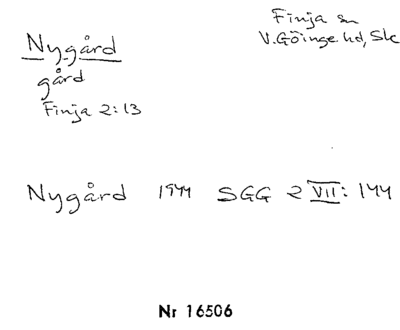 Nygård
gård
Finja 2:13
Finja sn
V. Göinge hd, Sk
Nygård 1944 SGG 2 VII: 144
Nr 16506